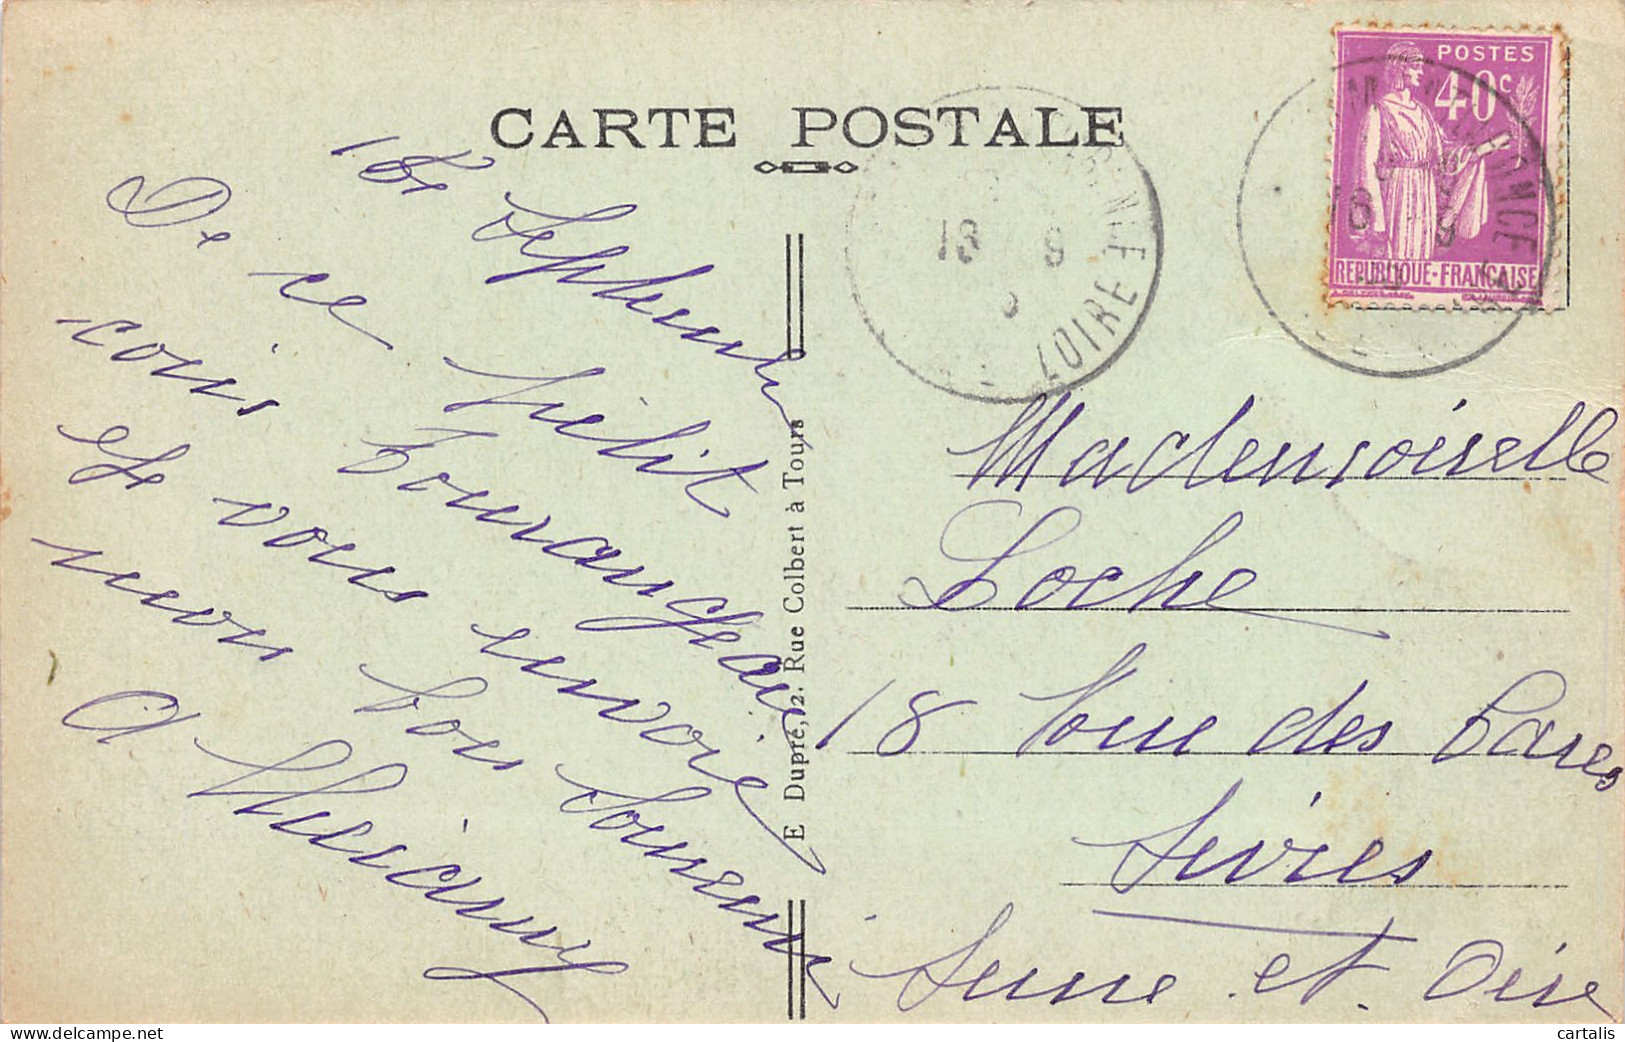 CARTE POSTALE
Septembre
De ce petit
coin Tourangeau
je vous envoie
mon bon souvenir
A
E Dupré, 2. Rue Colbert à Tours
POSTES
40c
REPUBLIQUE-FRANÇAISE
18 9
LOIRE
Mademoiselle
Loche
18 Rue des Caves
Sèvres
Seine et Oise
cartalis